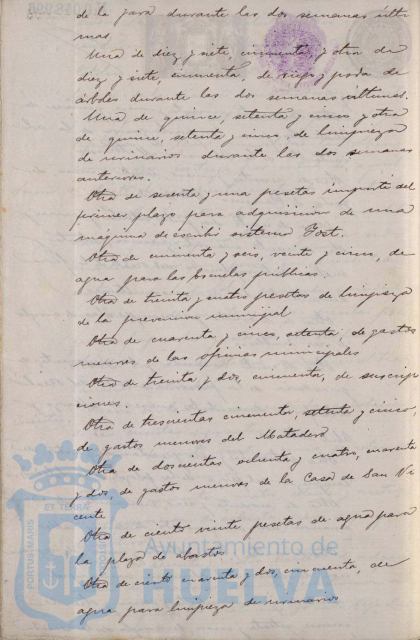 de la jara durante las dos semanas últi
mas.
Una de diez y siete, cincuenta, y otra de
diez y siete, cincuenta, de riego y poda de
árboles durante las dos semanas últimas.
Una de quince, setenta y cinco y otra
de quince, setenta y cinco, de limpieza
de urinarios durante las dos semanas
anteriores.
Otra de sesenta y una pesetas importe del
primer plazo para adquisicion de una
máquina de escribir sistema Yost.
Otra de cincuenta y seis, veinte y cinco, de
agua para las Escuelas públicas.
Otra de treinta y cuatro pesetas de limpieza
de la prevencion municipal
Otra de cuarenta y cinco, setenta, de gastos
menores de las oficinas municipales
Otra de treinta y dos, cincuenta, de suscrip
ciones.
Otra de trescientas cincuenta, setenta y cinco,
de gastos menores del Matadero
Otra de doscientas ochenta y cuatro, cuarenta
y dos, de gastos menores de la Casa de San Vi
cente
Otra de ciento veinte pesetas de agua para
la plaza de abastos
Otra de ciento cuarenta y dos, cincuenta, de
agua para limpieza de urinarios
PORTUS MARIS
ET TERRAE
Ayuntamiento de
HUELVA